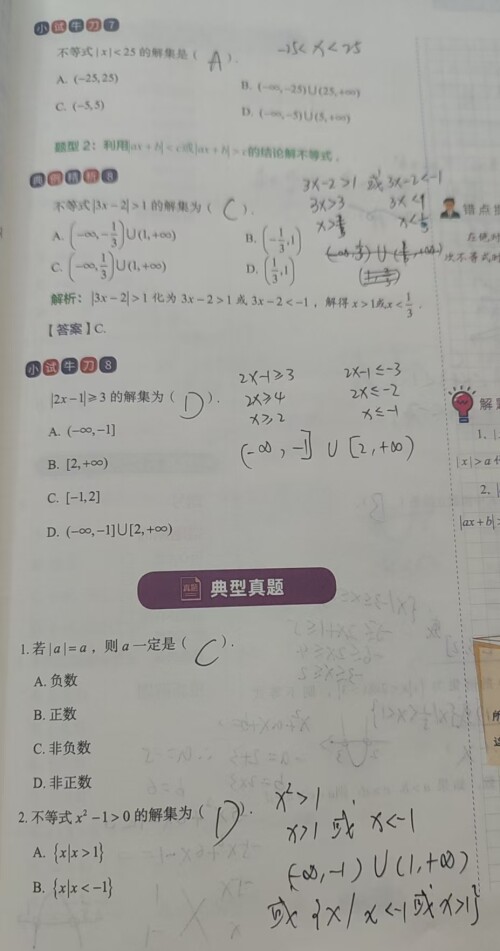 小试牛刀7
不等式|x|<25的解集是( A ). -25<x<25
A. (-25,25)
B. (-∞,-25)∪(25,+∞)
C. (-5,5)
D. (-∞,-5)∪(5,+∞)
题型2：利用|ax+b|<c或|ax+b|>c的结论解不等式.
典例精析8
3x-2>1 或 3x-2<-1
不等式|3x-2|>1的解集为( C ).
3x>3 3x<1
A. (-∞,-1/3)∪(1,+∞)
B. (-1/3,1)
C. (-∞,1/3)∪(1,+∞)
D. (1/3,1)
解析：|3x-2|>1 化为 3x-2>1 或 3x-2<-1，解得x>1或x<1/3.
【答案】C.
错点
在绝对
次不等式时
小试牛刀8
2x-1≥3 2x-1≤-3
|2x-1|≥3的解集为( D ).
2x≥4 2x≤-2
x≥2 x≤-1
A. (-∞,-1]
(-∞,-1] ∪ [2,+∞)
B. [2,+∞)
C. [-1,2]
D. (-∞,-1]∪[2,+∞)
解题
1.
|x|>a
2.
|ax+b|
真题 典型真题
1.若|a|=a，则a一定是( C ).
A.负数
B.正数
C.非负数
D.非正数
2.不等式x²-1>0的解集为( D ).
x²>1
x>1 或 x<-1
A. {x|x>1}
(-∞,-1)∪(1,+∞)
B. {x|x<-1}
或 {x|x<-1或x>1}